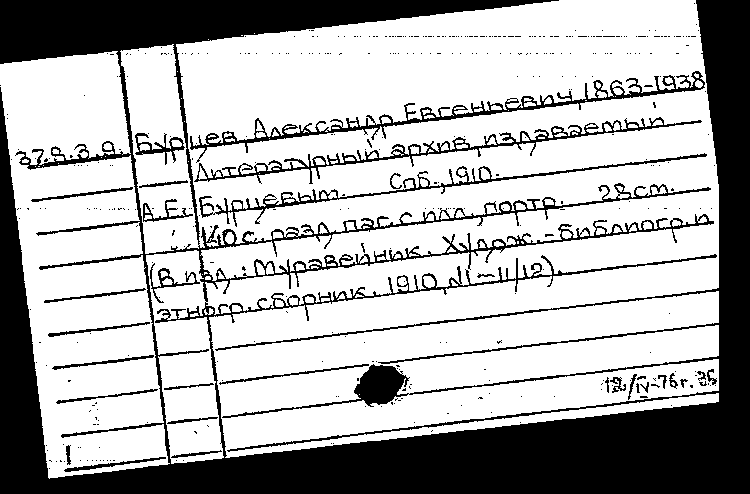 37.8.3.9. Бурцев, Александр Евгеньевич, 1863-1938
Литературный архив, издаваемый
А.Е. Бурцевым. Спб., 1910.
140 с. разд. паг. с илл., портр. 28 см.
(В изд.: Муравейник. Худож.-библиогр. и
этногр. сборник. 1910, №1-11/12).
12/IV-76 г.